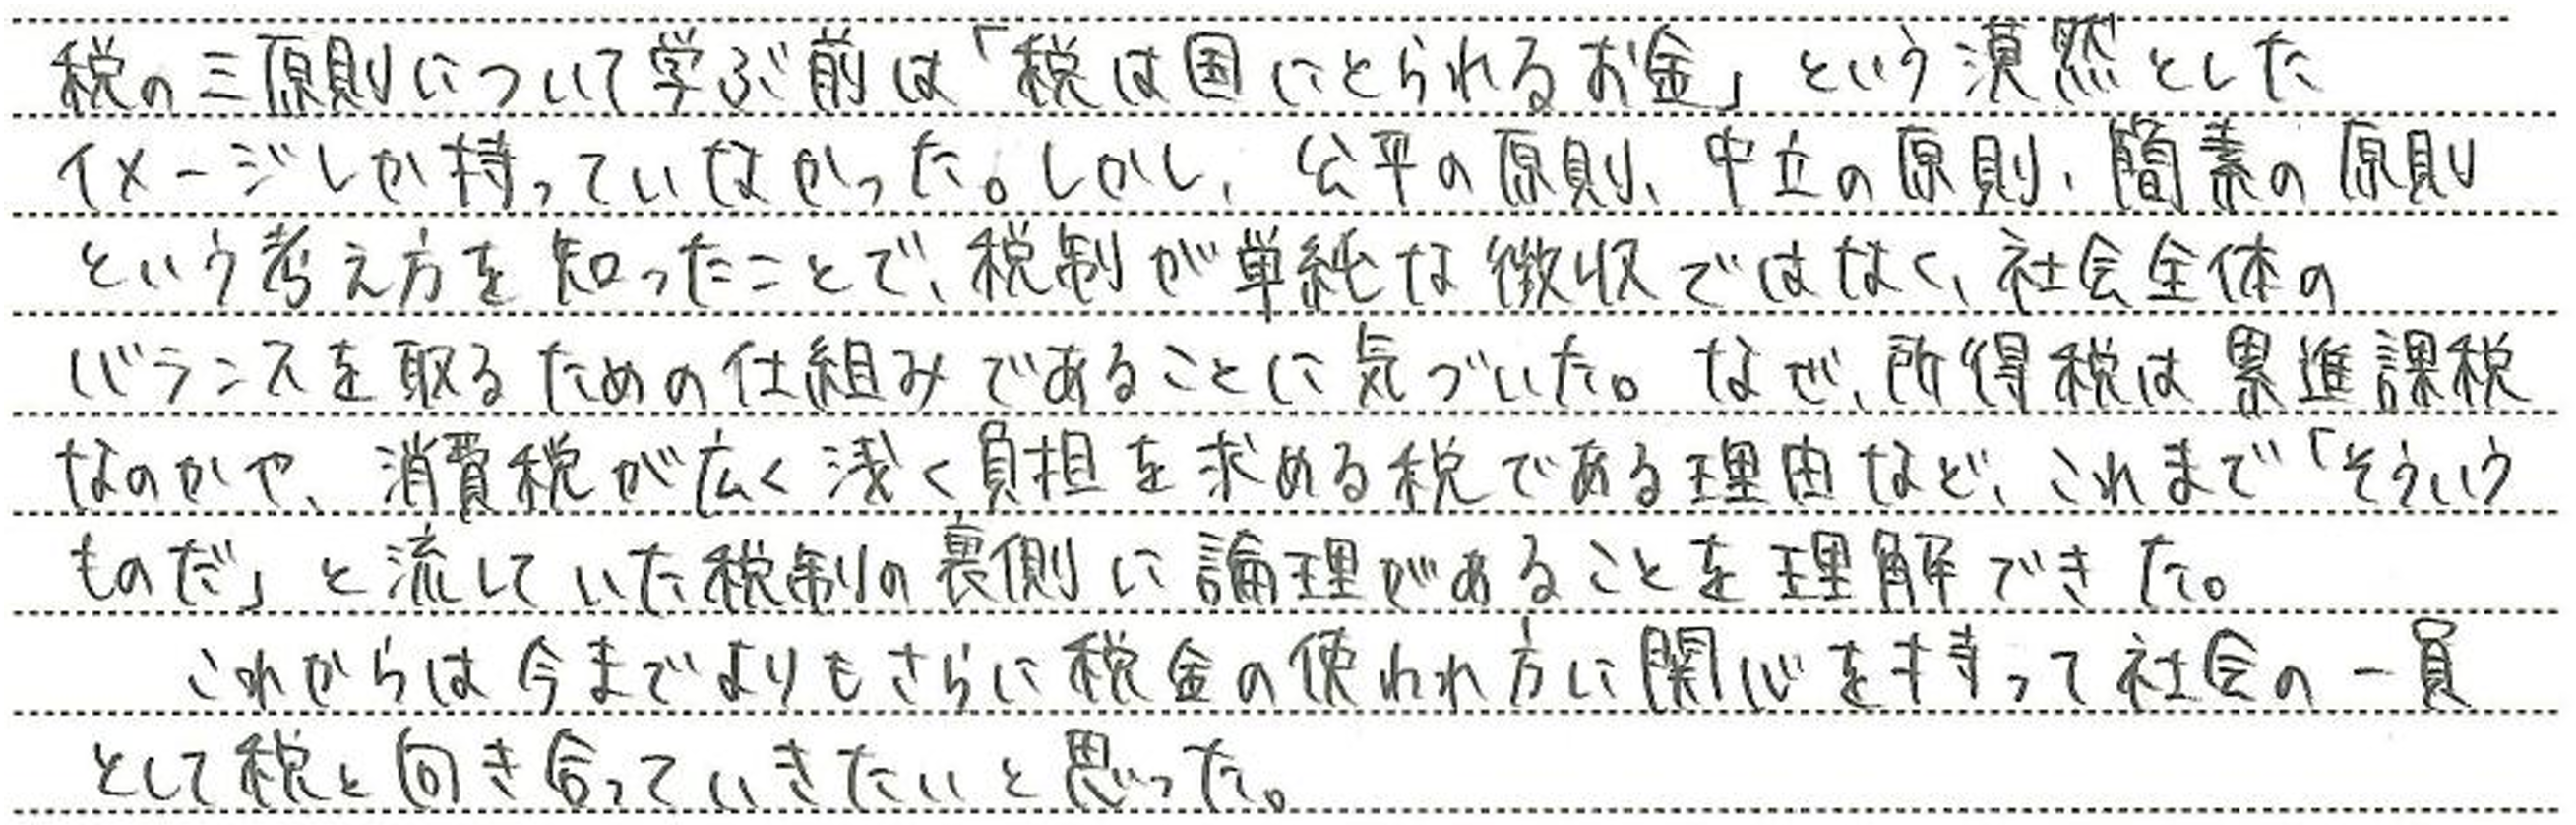 税の三原則について学ぶ前は「税は国にとられるお金」という漠然とした
イメージしか持っていなかった。しかし、公平の原則、中立の原則、簡素の原則
という考え方を知ったことで、税制が単純な徴収ではなく、社会全体の
バランスを取るための仕組みであることに気づいた。なぜ、所得税は累進課税
なのかや、消費税が広く浅く負担を求める税である理由など、これまで「そういう
ものだ」と流していた税制の裏側に論理があることを理解できた。
これからは今までよりもさらに税金の使われ方に関心を持って社会の一員
として税と向き合っていきたいと思った。